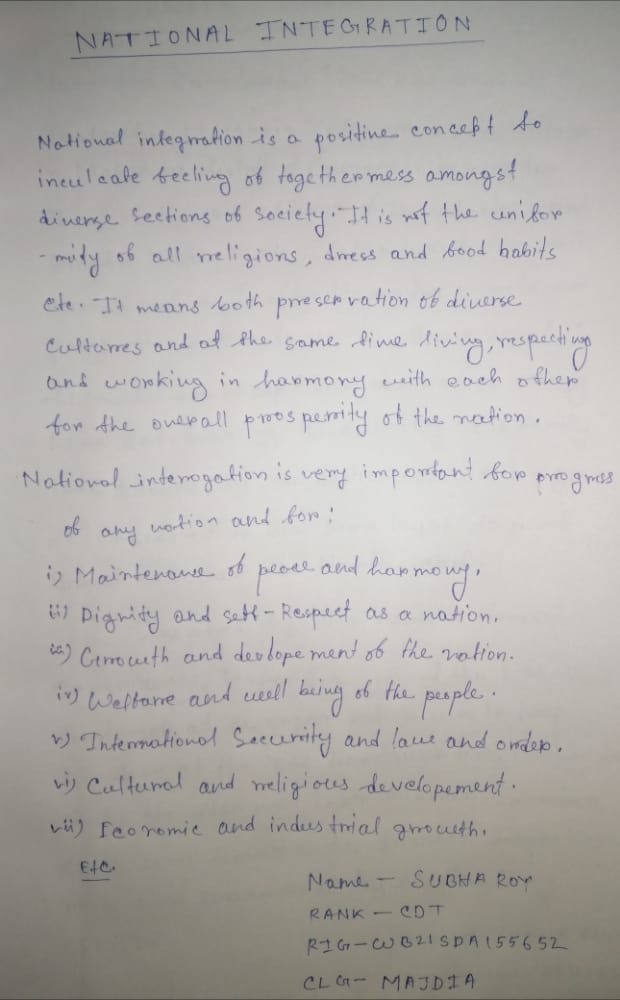 NATIONAL INTEGRATION
National integration is a positive concept to
inculcate feeling of togetherness amongst
diverse sections of society. It is not the unifor
-mity of all religions, dress and food habits
etc. It means both preservation of diverse
cultures and at the same time living, respecting
and working in harmony with each other
for the overall prosperity of the nation.
National interrogation is very important for progress
of any nation and for:
i) Maintenance of peace and harmony.
ii) Dignity and self-Respect as a nation.
iii) Growth and devlopement of the nation.
iv) Welfare and well being of the people.
v) International Security and law and order.
vi) Cultural and religious developement.
vii) Economic and industrial growth.
Etc.
Name - SUBHA ROY
RANK - CDT
RIG-WB21SDA155652
CLG- MAJDIA